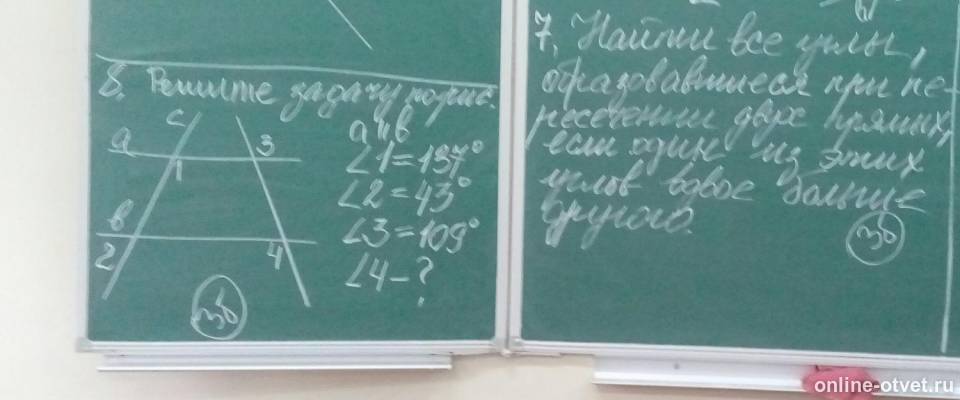 8. Решите задачу по рис.
с
а
3
1
в
2
4
а || в
∠1 = 137°
∠2 = 43°
∠3 = 109°
∠4 - ?
3б
7. Найти все углы,
образовавшиеся при пе-
ресечении двух прямых,
если один из этих
углов вдвое больше
другого.
3б
online-otvet.ru